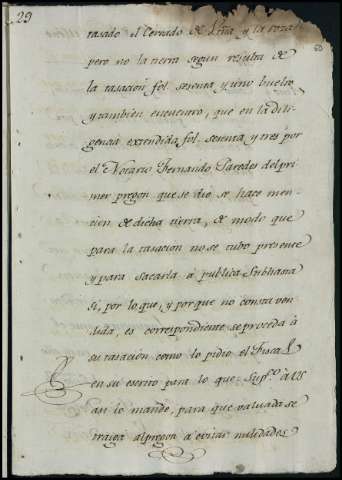 29
tasado el Cercado de Piña y la roza
pero no la tierra segun resulta de
la tasacion fol. sesenta y uno buelto
y tambien encuentro, que en la dili-
gencia extendida fol. sesenta y tres por
el Notario Fernando Paredes del pri-
mer pregon que se dió se hace men-
cion de dicha tierra, de modo que
para la tasacion no se tubo presente
y para sacarla á publica Subhasta
si, por lo que, y por que no consta ven
dida, es correspondiente se proceda á
su tasacion como lo pidio el Fiscal
en su escrito para lo que Sup.co á VS
asi lo mande, para que valuada se
traiga al pregon á evitar nulidades